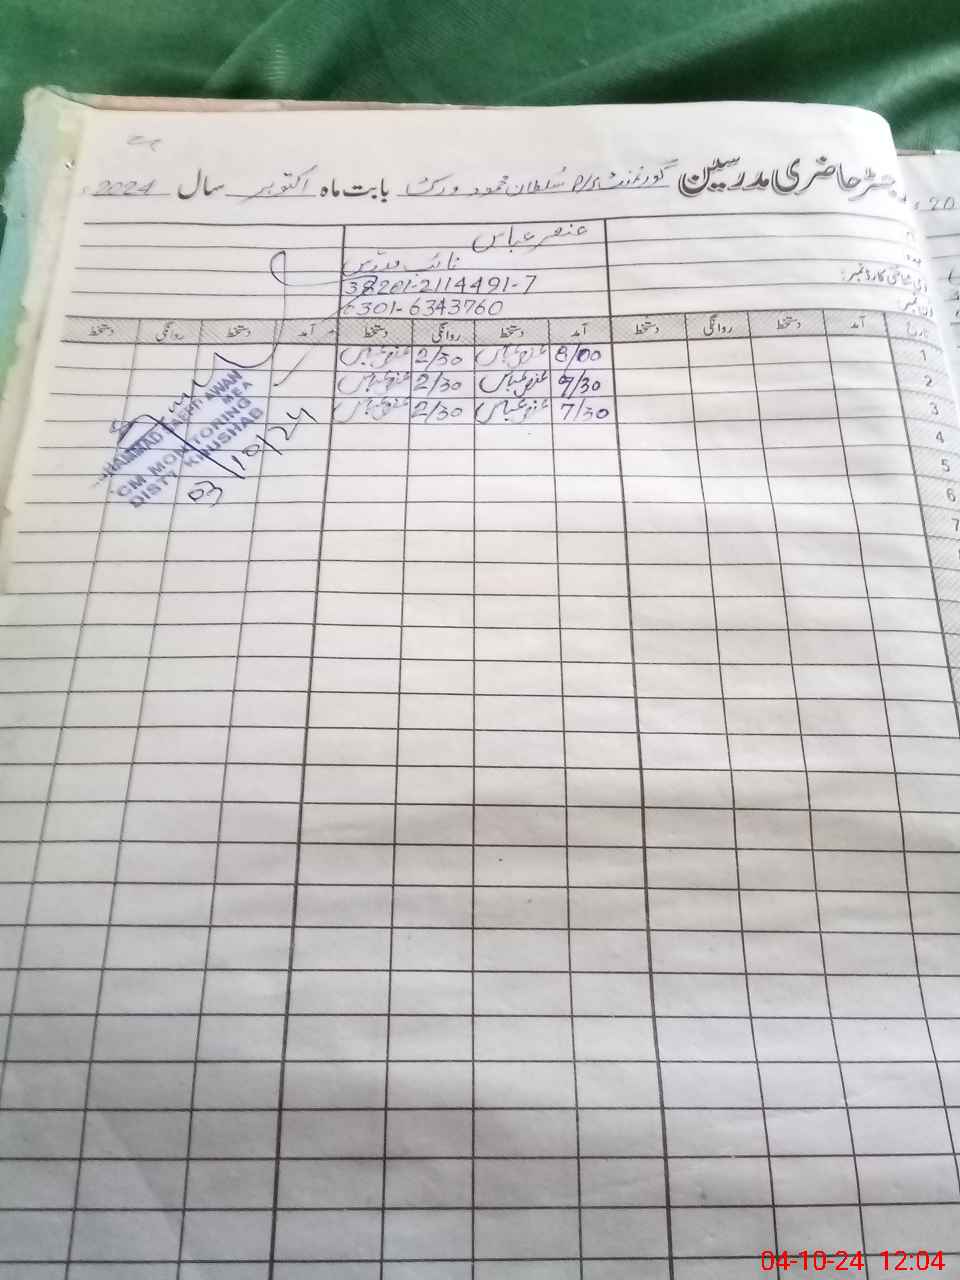 رجسٹر حاضری مدرسین گورنمنٹ P/S سُلطان محمود ورکشا بابت ماہ اکتوبر سال 2024ء
عنصر عباس
نائب مدرّس
قومی شناختی کارڈ نمبر: 38201-2114491-7
0301-6343760
تاریخ آمد دستخط روانگی دستخط آمد دستخط روانگی دستخط آمد دستخط روانگی دستخط
1 8/00 عنصر عباس 2/30 عنصر عباس
2 7/30 عنصر عباس 2/30 عنصر عباس
3 7/30 عنصر عباس 2/30 عنصر عباس
4
5
6
7
AWAN
MEA
CM MONITORING
DISTT KHUSHAB
03/10/24
04-10-24 12:04